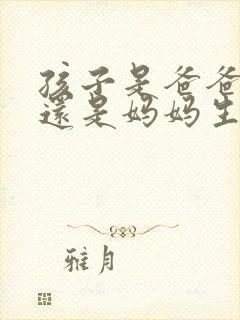 孩子是爸爸
還是妈妈生
雅月